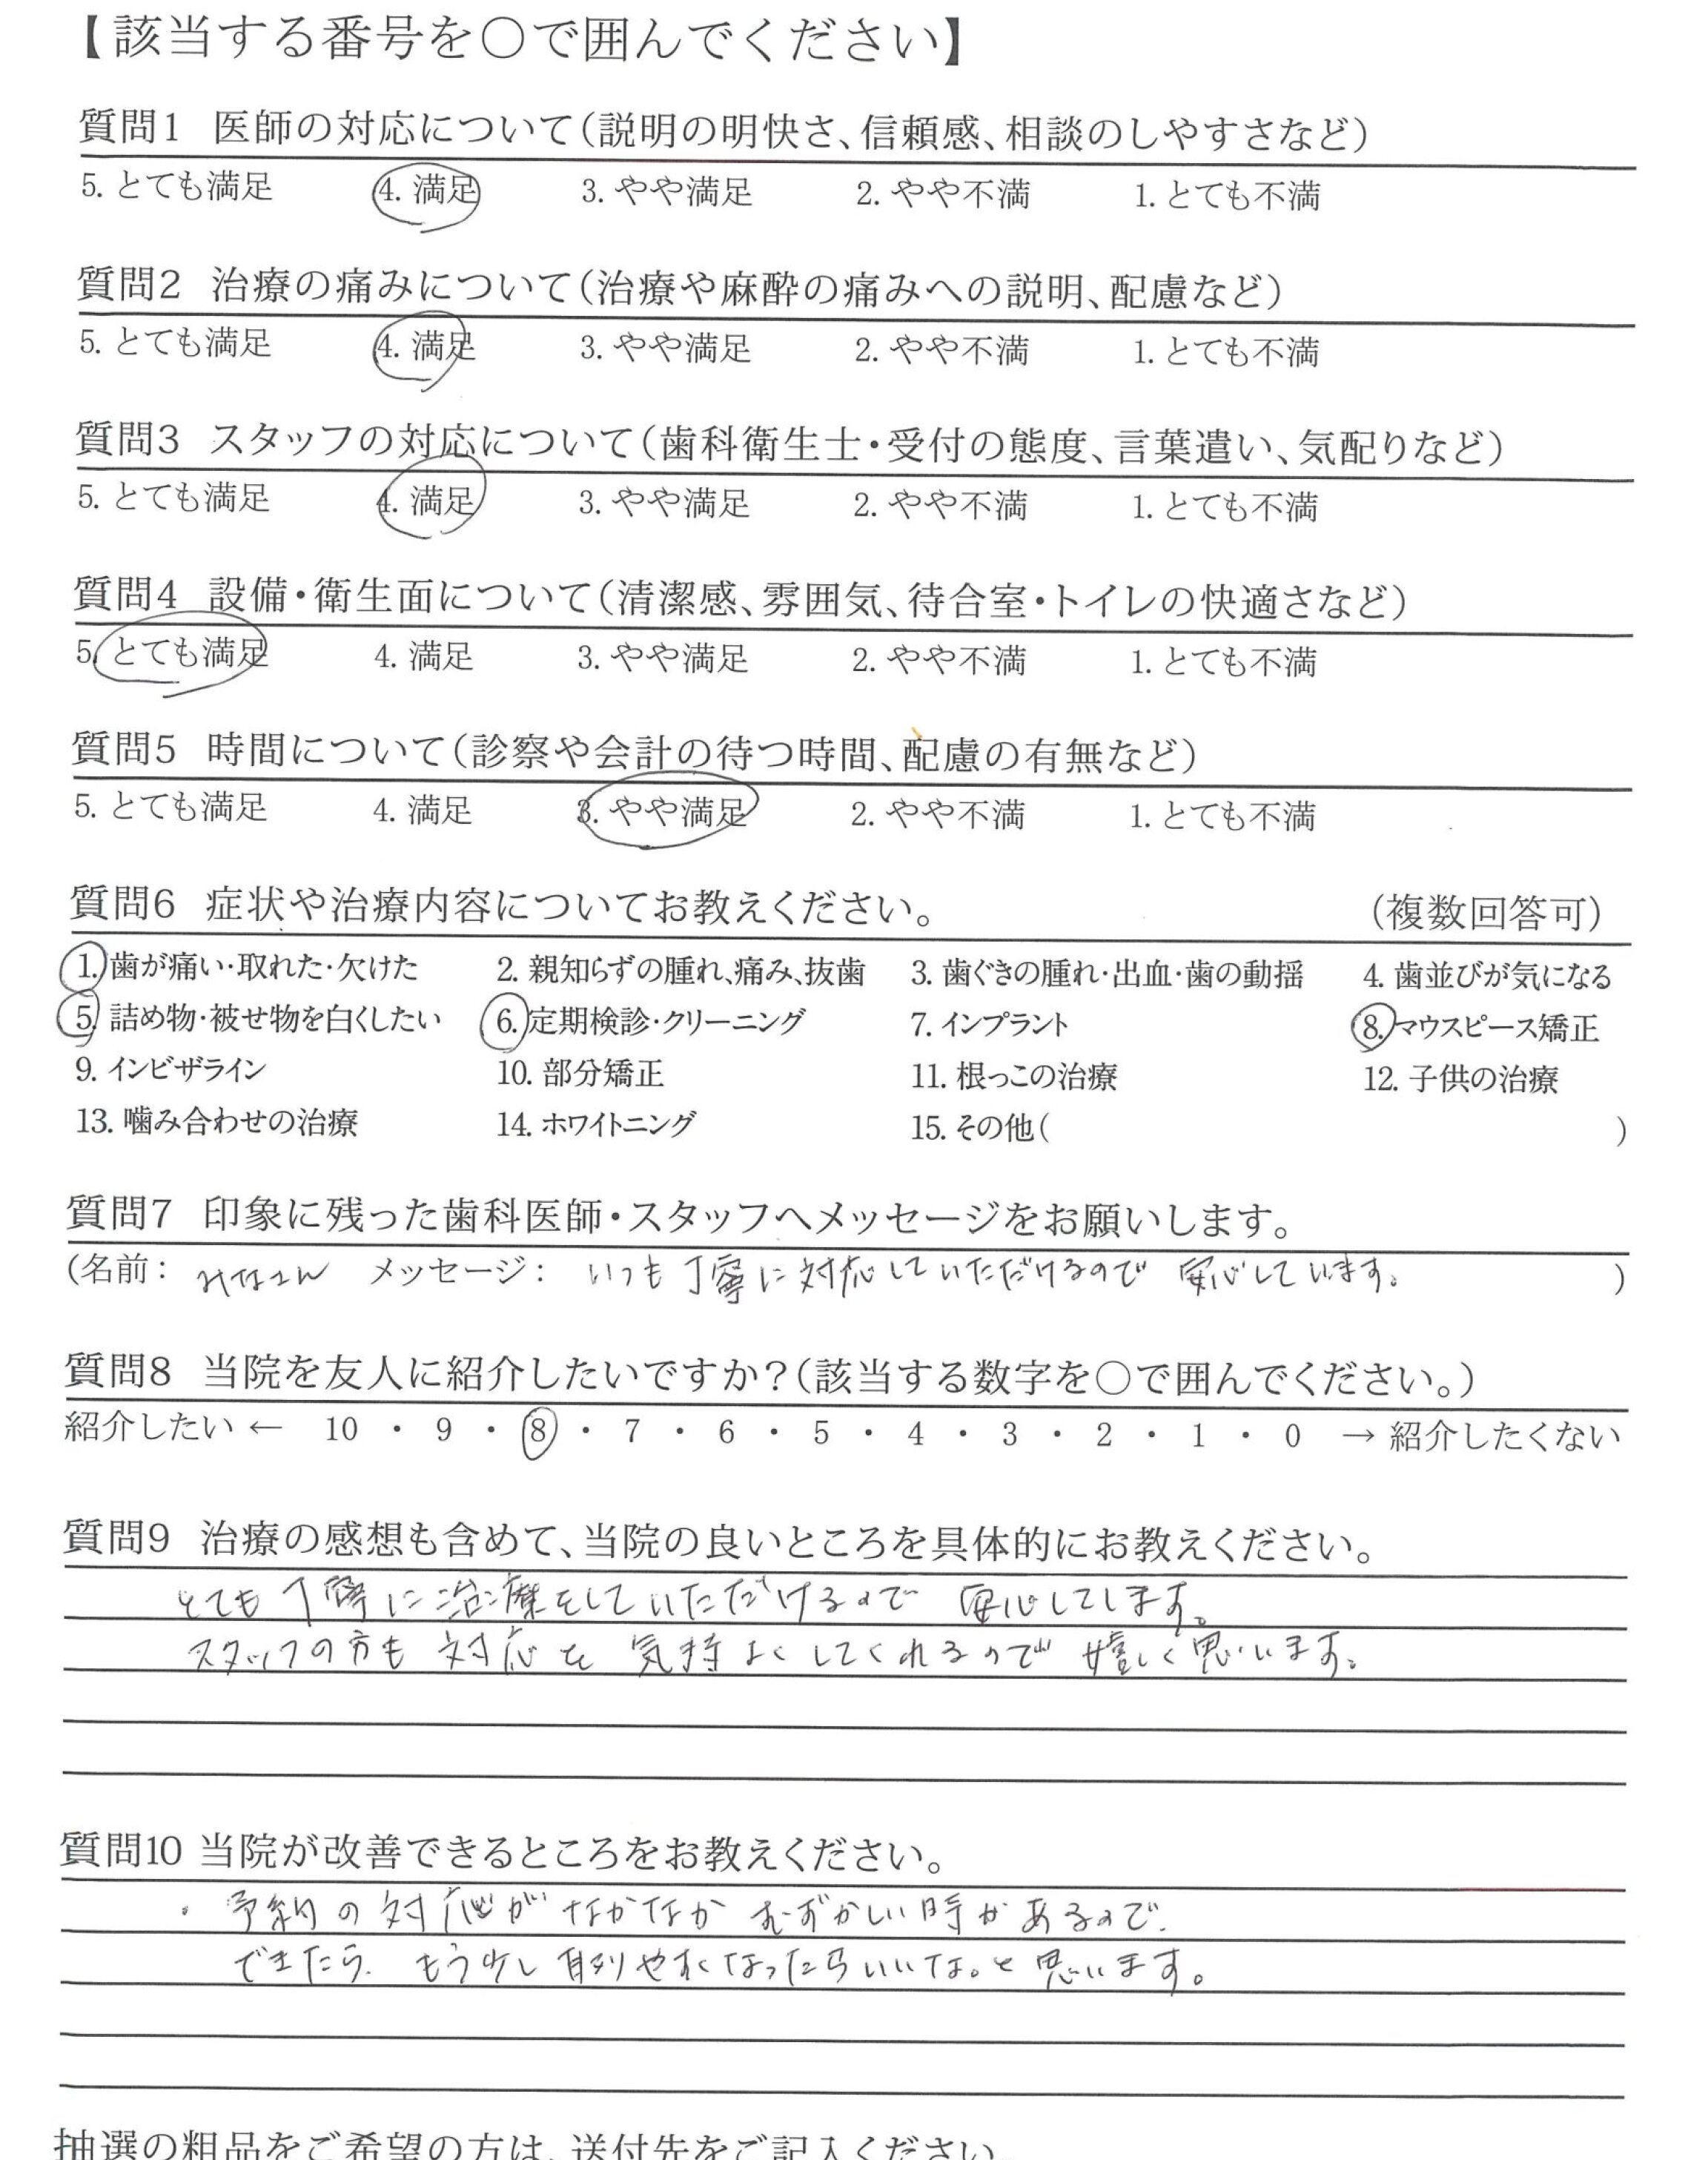 【該当する番号を〇で囲んでください】
質問1 医師の対応について(説明の明快さ、信頼感、相談のしやすさなど)
5. とても満足 4. 満足 3. やや満足 2. やや不満 1. とても不満
質問2 治療の痛みについて(治療や麻酔の痛みへの説明、配慮など)
5. とても満足 4. 満足 3. やや満足 2. やや不満 1. とても不満
質問3 スタッフの対応について(歯科衛生士・受付の態度、言葉遣い、気配りなど)
5. とても満足 4. 満足 3. やや満足 2. やや不満 1. とても不満
質問4 設備・衛生面について(清潔感、雰囲気、待合室・トイレの快適さなど)
5. とても満足 4. 満足 3. やや満足 2. やや不満 1. とても不満
質問5 時間について(診察や会計の待つ時間、配慮の有無など)
5. とても満足 4. 満足 3. やや満足 2. やや不満 1. とても不満
質問6 症状や治療内容についてお教えください。 (複数回答可)
1. 歯が痛い・取れた・欠けた 2. 親知らずの腫れ、痛み、抜歯 3. 歯ぐきの腫れ・出血・歯の動揺 4. 歯並びが気になる
5. 詰め物・被せ物を白くしたい 6. 定期検診・クリーニング 7. インプラント 8. マウスピース矯正
9. インビザライン 10. 部分矯正 11. 根っこの治療 12. 子供の治療
13. 噛み合わせの治療 14. ホワイトニング 15. その他( )
質問7 印象に残った歯科医師・スタッフへメッセージをお願いします。
(名前: みなさん メッセージ: いつも丁寧に対応していただけるので 安心しています。 )
質問8 当院を友人に紹介したいですか?(該当する数字を〇で囲んでください。)
紹介したい ← 10 ・ 9 ・ 8 ・ 7 ・ 6 ・ 5 ・ 4 ・ 3 ・ 2 ・ 1 ・ 0 → 紹介したくない
質問9 治療の感想も含めて、当院の良いところを具体的にお教えください。
とても丁寧に治療をしていただけるので 安心してします。
スタッフの方も 対応を 気持よくしてくれるので 嬉しく思います。
質問10 当院が改善できるところをお教えください。
・予約の対応がなかなか むずかしい時があるので、
できたら、もう少し やすくなったらいいな。と思います。
抽選の粗品をご希望の方は、送付先をご記入ください。